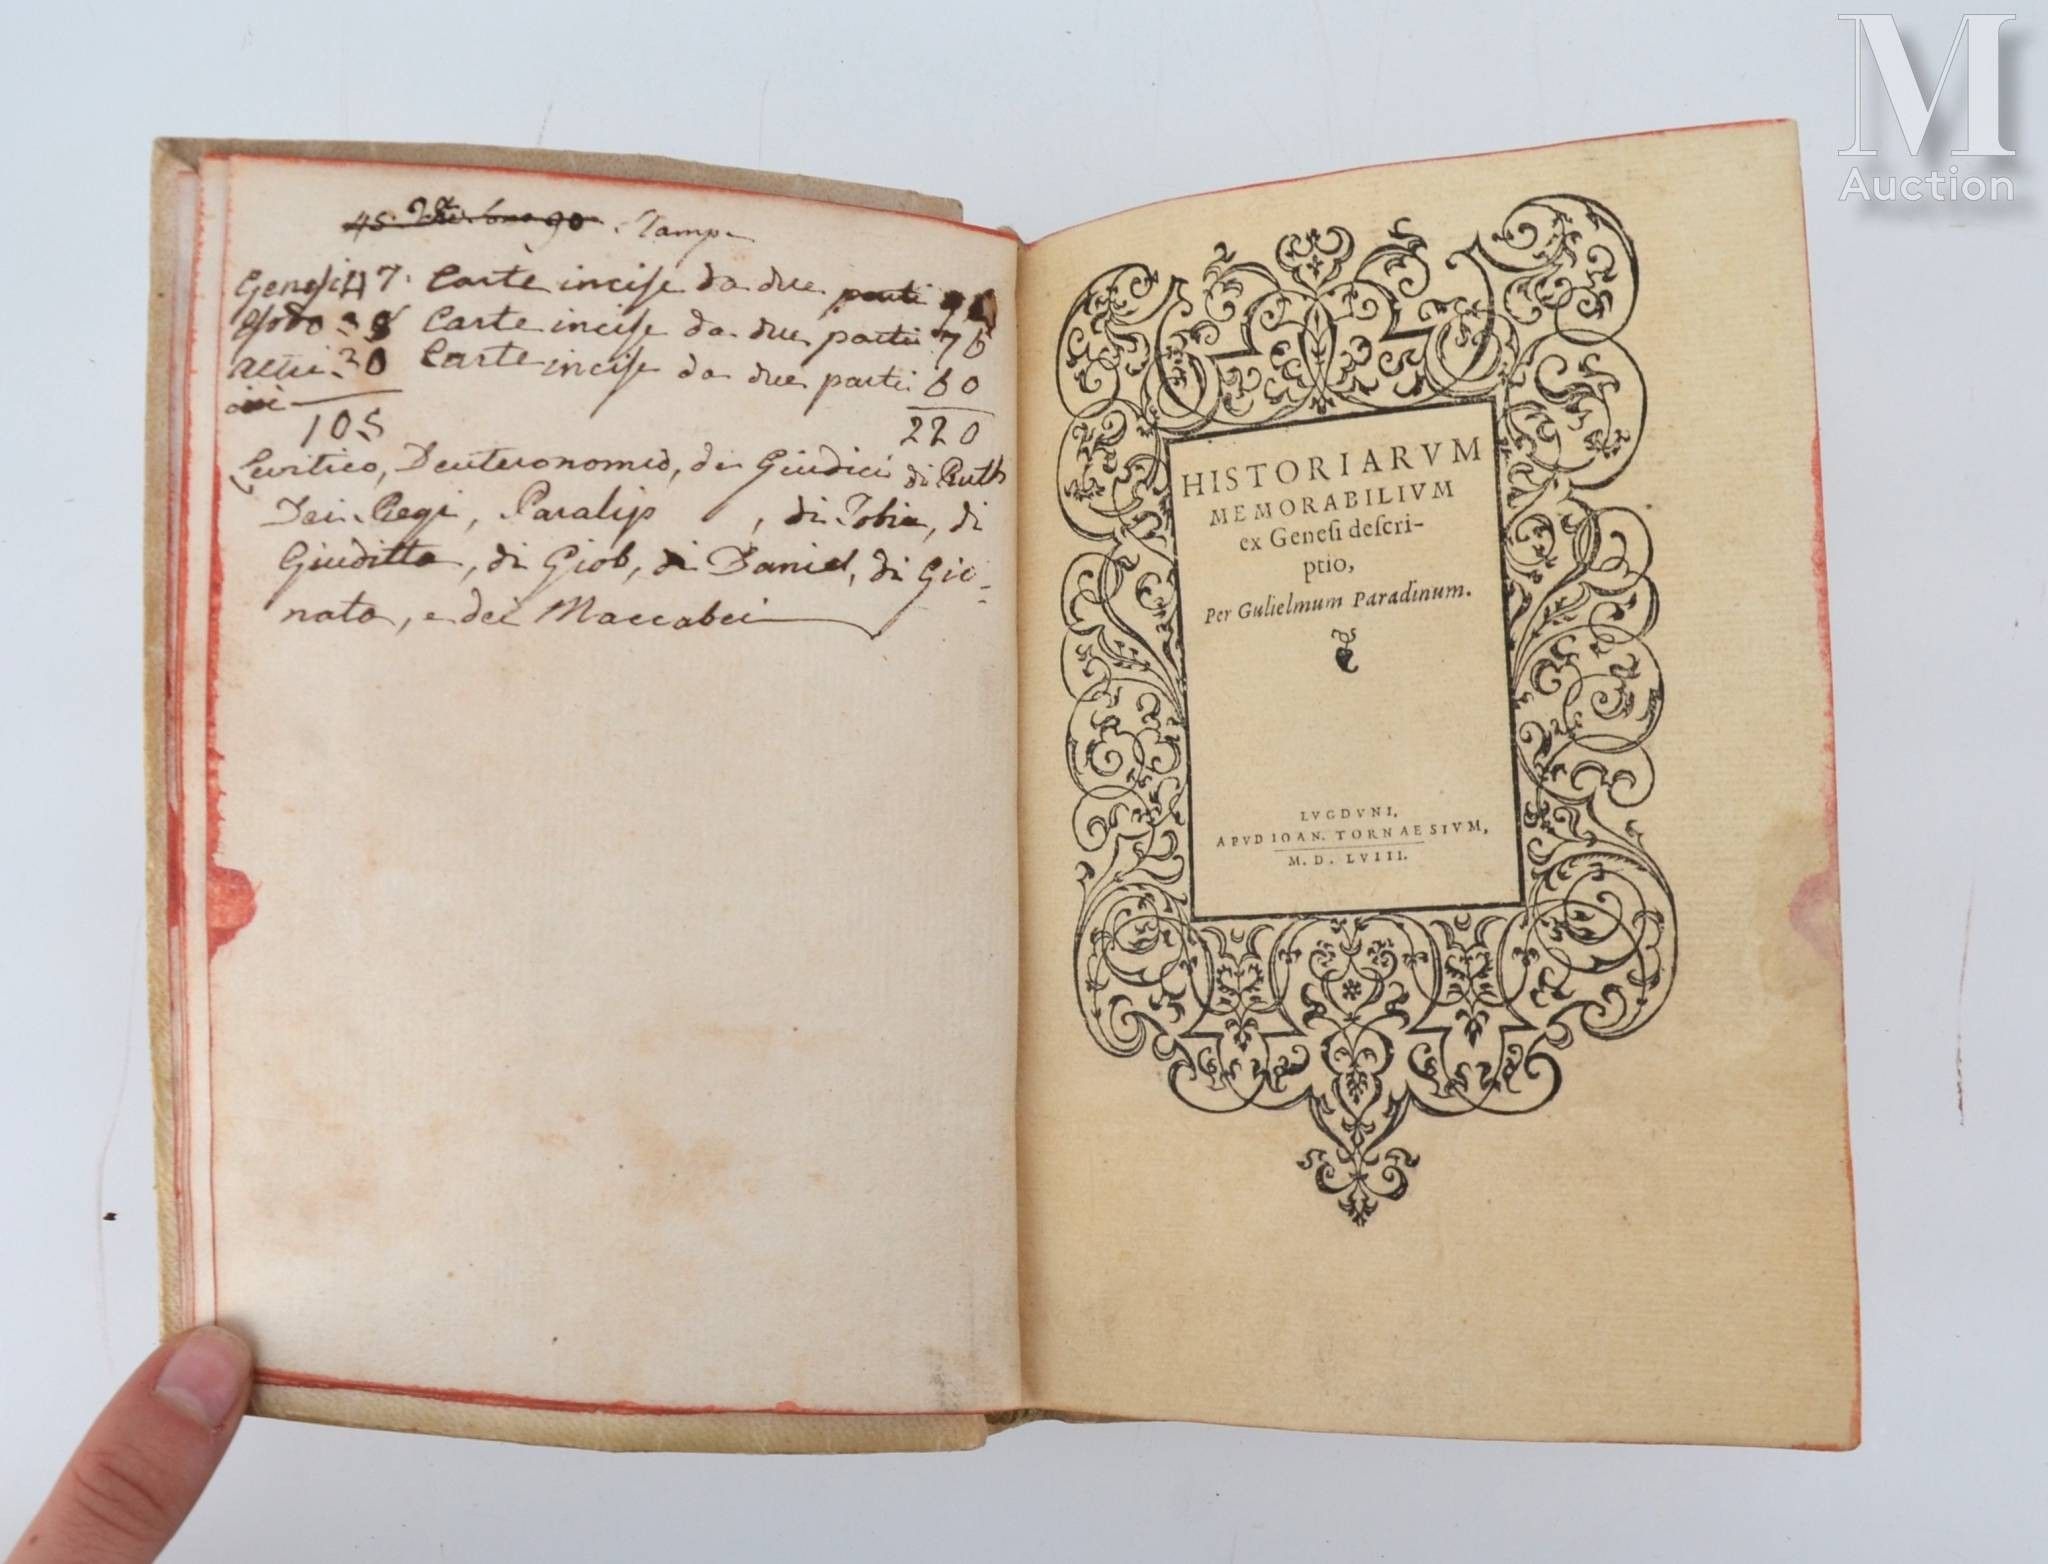 45. 90. Stamp
Genesi 47. Carte incise da due parti
Esodo 38 Carte incise da due parti 76
Altri 30 Carte incise da due parti 60
105 220
Levitico, Deuteronomio, dei Giudici di Ruth
Dei Regi, Paralip , di Tobia, di
Giuditta, di Giob, di Daniel, di Gio-
nata, e dei Maccabei
HISTORIARVM
MEMORABILIVM
ex Geneſi deſcri-
ptio,
Per Gulielmum Paradinum.
LVGDVNI,
APVD IOAN. TORNAESIVM,
M. D. LVIII.
M
Auction